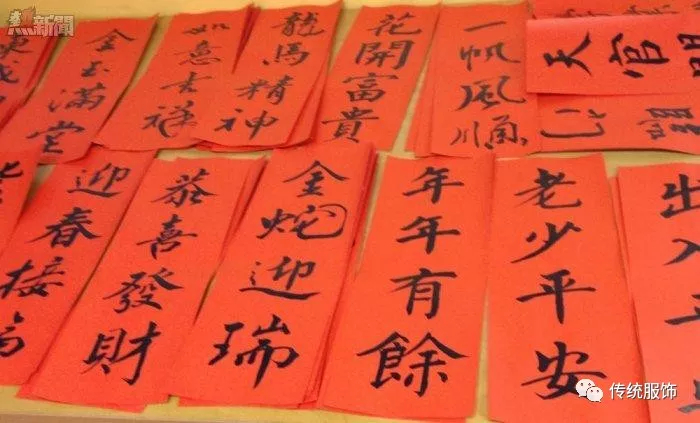 新聞
金玉滿堂
如意吉祥
龍馬精神
花開富貴
一帆風順
天官
迎春接
恭喜發財
金蛇迎瑞
年年有餘
老少平安
出入
传统服饰